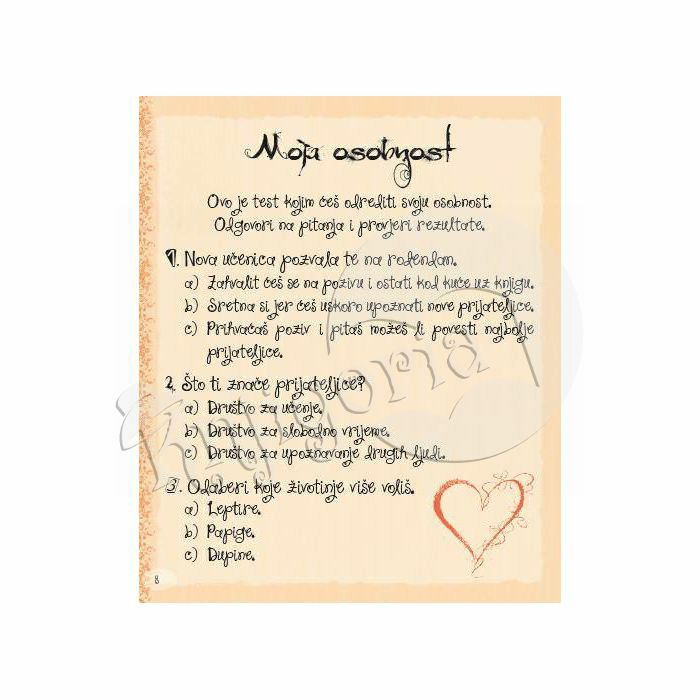 Moja osobnost
Ovo je test kojim ćeš odrediti svoju osobnost.
Odgovori na pitanja i provjeri rezultate.
1. Nova učenica pozvala te na rođendan.
a) Zahvalit ćeš se na pozivu i ostati kod kuće uz knjigu.
b) Sretna si jer ćeš uskoro upoznati nove prijateljice.
c) Prihvaćaš poziv i pitaš možeš li povesti najbolje
prijateljice.
2. Što ti znače prijateljice?
a) Društvo za učenje.
b) Društvo za slobodno vrijeme.
c) Društvo za upoznavanje drugih ljudi.
3. Odaberi koje životinje više voliš.
a) Leptire.
b) Papige.
c) Dupine.
8
Knjigoria